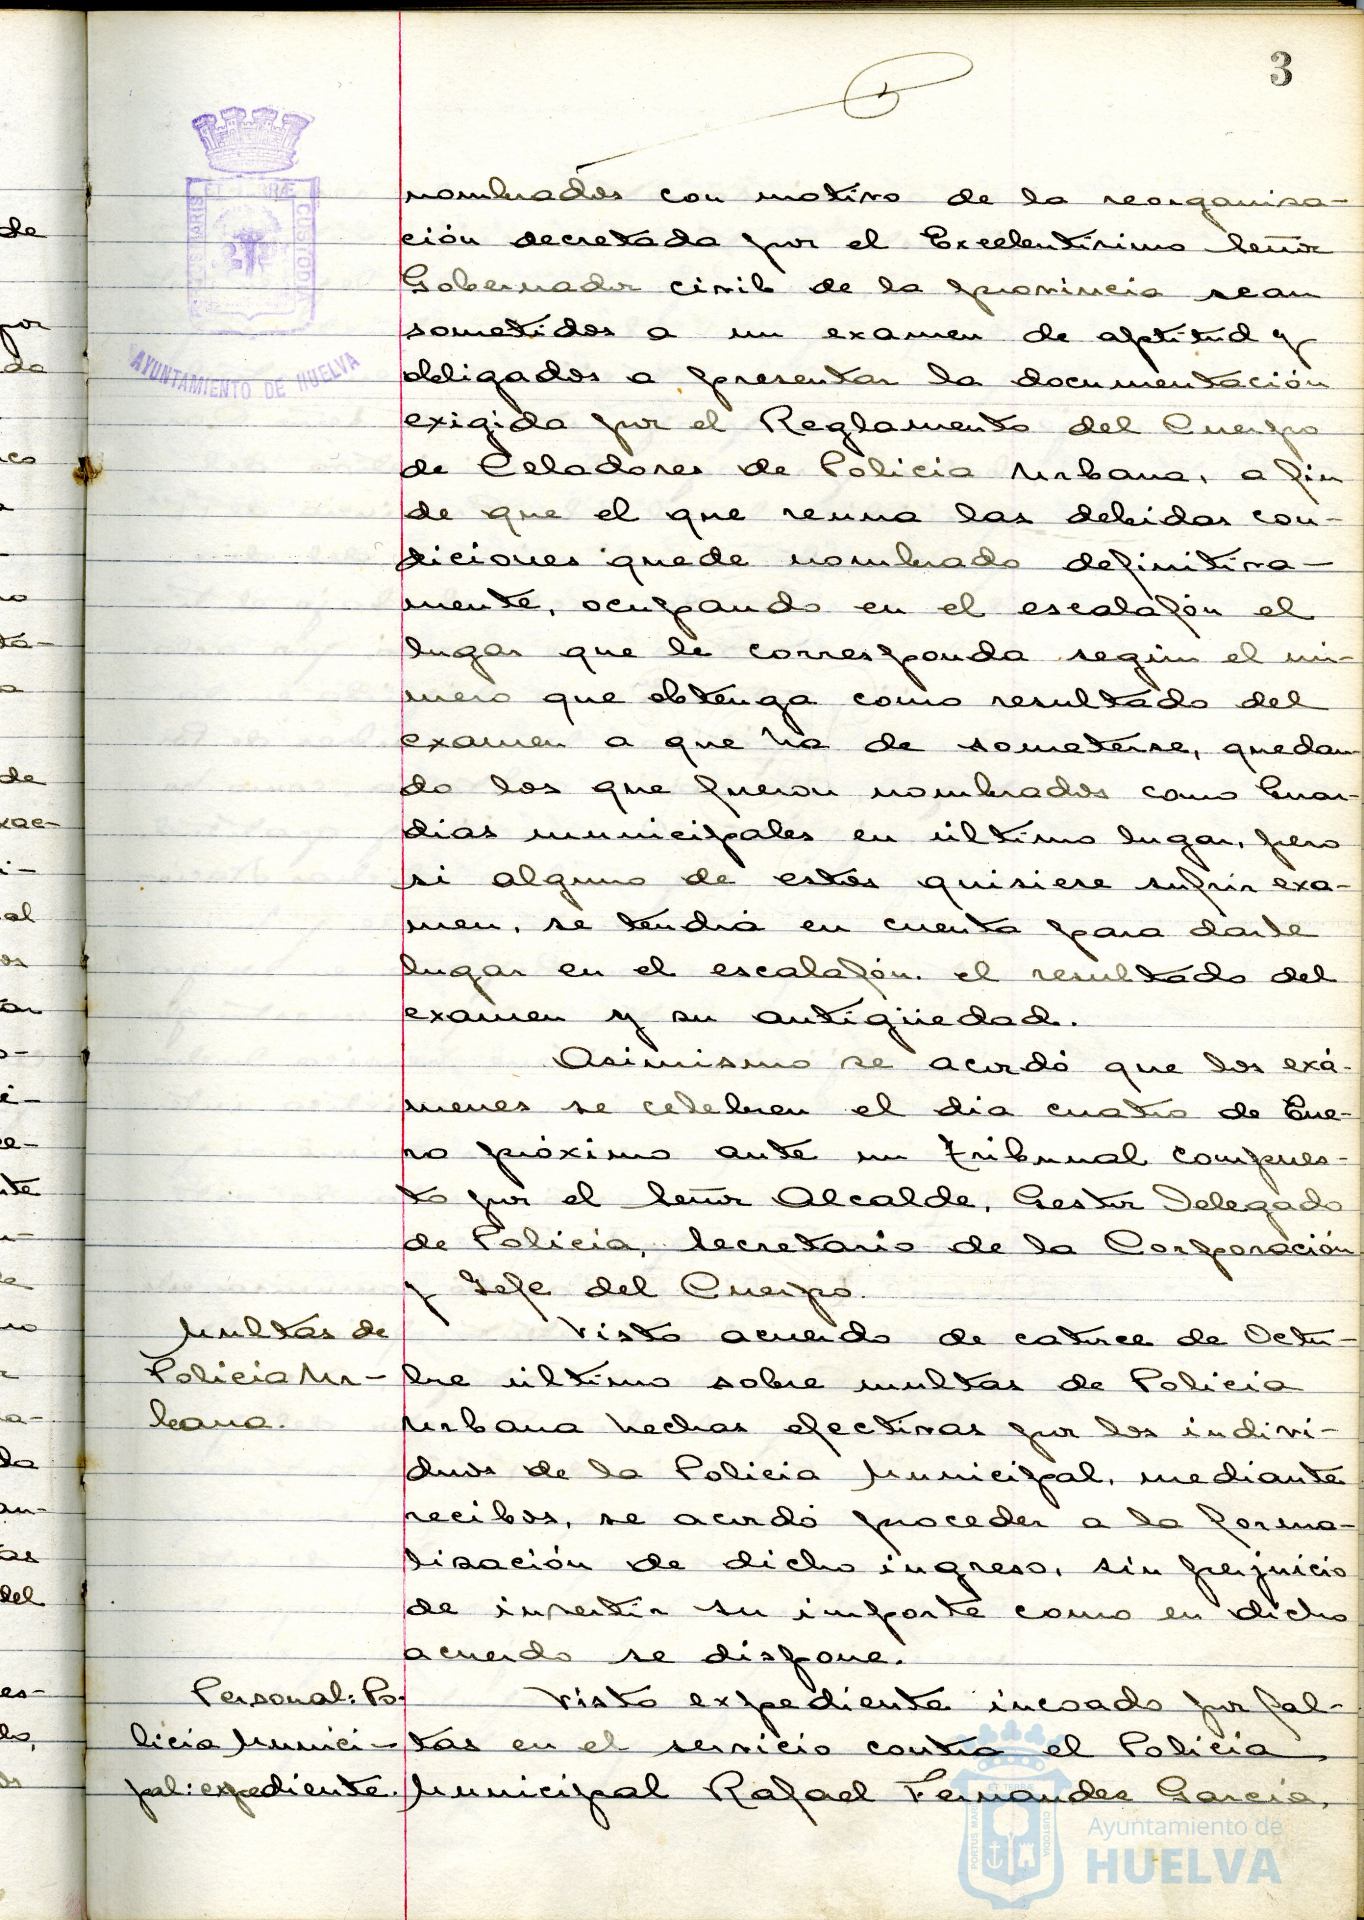 3
nombrados con motivo de la reorganiza-
ción decretada por el Excelentísimo Señor
Gobernador civil de la provincia sean
sometidos a un examen de aptitud y
obligados a presentar la documentación
exigida por el Reglamento del Cuerpo
de Celadores de Policia Urbana, a fin
de que el que reuna las debidas con-
diciones quede nombrado definitiva-
mente, ocupando en el escalafón el
lugar que le corresponda según el nú-
mero que obtenga como resultado del
examen a que ha de someterse, quedan-
do los que fueron nombrados como Guar-
dias municipales en último lugar, pero
si alguno de estos quisiere sufrir exa-
men, se tendrá en cuenta para darle
lugar en el escalafón, el resultado del
examen y su antigüedad.
Asimismo se acordó que los exá-
menes se celebren el dia cuatro de Ene-
ro próximo ante un tribunal compues-
to por el Señor Alcalde, Gestor Delegado
de Policia, Secretario de la Corporación
y Jefe del Cuerpo.
Multas de
Policia Ur-
bana.
Visto acuerdo de catorce de Octu-
bre último sobre multas de Policia
Urbana hechas efectivas por los indivi-
duos de la Policia Municipal, mediante
recibos, se acordó proceder a la forma-
lización de dicho ingreso, sin perjuicio
de invertir su importe como en dicho
acuerdo se dispone.
Personal: Po-
licia Munici-
pal: expediente.
Visto expediente incoado por fal-
tas en el servicio contra el Policia
Municipal Rafael Fernandez Garcia,
AYUNTAMIENTO DE HUELVA
PORTUS MARIS ET TERRÆ CUSTODIA
Ayuntamiento de
HUELVA